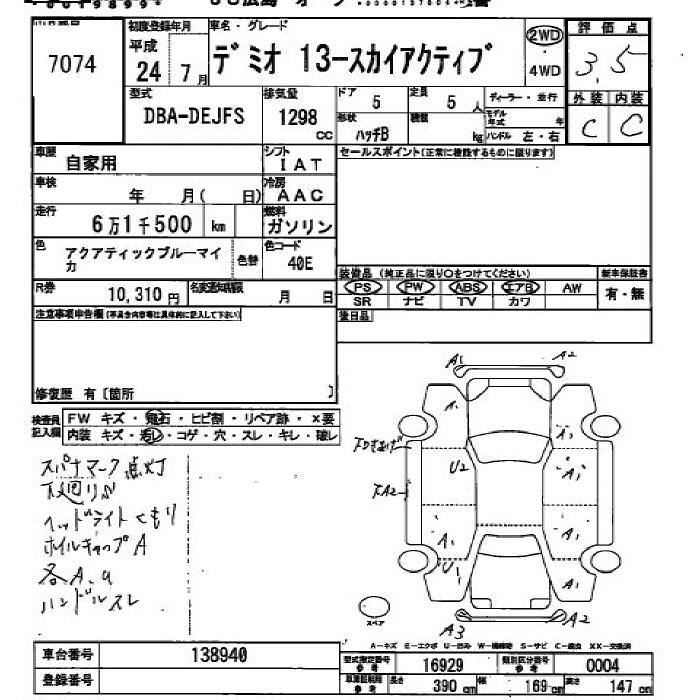 7074
初度登録年月
平成
24 7月
車名・グレード
デミオ 13-スカイアクティブ
2WD
4WD
評価点
3.5
外装 内装
C C
型式
DBA-DEJFS
排気量
1298 cc
ドア
5
定員
5 人
ディーラー・並行
形状
ハッチB
積載
kg
モデル年式 年
ハンドル 左・右
車歴
自家用
シフト
IAT
セールスポイント(正常に機能するものに限ります)
車検
年 月( 日)
冷房
AAC
走行
6万1千500 km
燃料
ガソリン
色
アクアティックブルーマイカ
色替
色コード
40E
装備品 (純正品に限り○をつけてください)
新車保証書
PS PW ABS エアB AW
SR ナビ TV カワ
有・無
R券
10,310 円
名変通知期限
月 日
後日品
注意事項申告欄(不具合内容等は具体的に記入して下さい)
修復歴 有〔箇所 〕
検査員記入欄
FW キズ・飛石・ヒビ割・リペア跡・×要
内装 キズ・汚レ・コゲ・穴・スレ・キレ・破レ
スパナマーク点灯
下廻りS
ヘッドライトくもり
ホイルキャップA
各A、u
ハンドルスレ
A1 A2
A1
U2
A1
A1
A1
A1
U1
A1
下A2
A3 A2
スペア
A-キズ E-エクボ U-凹み W-補修跡 S-サビ C-腐食 XX-交換済
車台番号
138940
登録番号
型式指定番号 参考
16929
類別区分番号 参考
0004
車庫証明用 参考
長さ 390 cm
幅 169 cm
高さ 147 cm